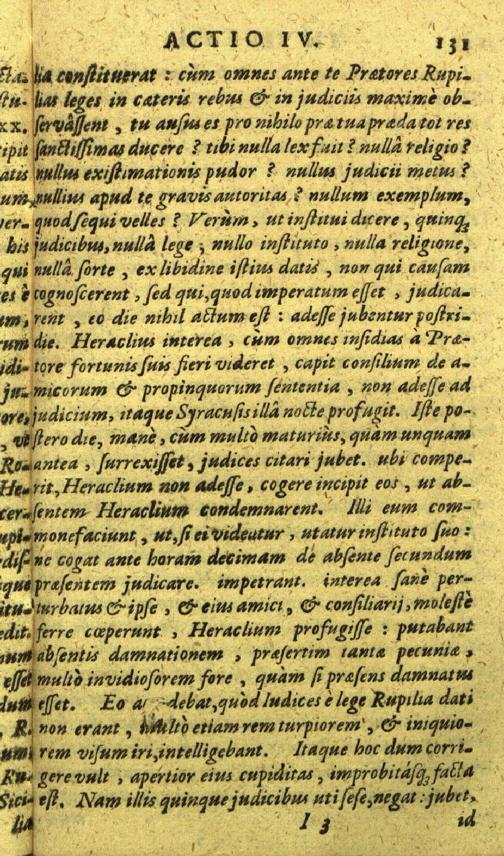 ACTIO IV. 131
lia constituerat : cùm omnes ante te Prætores Rupi-
lias leges in cæteris rebus & in judiciis maximè ob-
servâssent , tu ausus es pro nihilo præ tua præda tot res
sanctissimas ducere ? tibi nulla lex fuit ? nulla religio ?
nullus existimationis pudor ? nullus judicii metus ?
nullius apud te gravis autoritas ? nullum exemplum,
quod sequi velles ? Verùm , ut institui dicere , quinq;
judicibus, nullâ lege ; nullo instituto , nulla religione,
nullâ sorte , ex libidine istius datis , non qui causam
cognoscerent , sed qui, quod imperatum esset , judica-
rent , eo die nihil actum est : adesse jubentur postri-
die. Heraclius interea , cùm omnes insidias à Præ-
tore fortunis suis fieri videret , capit consilium de a-
micorum & propinquorum sententia , non adesse ad
judicium, itaque Syracusis illâ nocte profugit. Iste po-
stero die, manè, cum multò maturiùs, quàm unquam
antea , surrexisset, judices citari jubet. ubi compe-
rit, Heraclium non adesse , cogere incipit eos , ut ab-
sentem Heraclium condemnarent. Illi eum com-
monefaciunt , ut, si ei videatur , utatur instituto suo :
ne cogat ante horam decimam de absente secundum
præsentem judicare. impetrant. interea sanè per-
turbatus & ipse , & eius amici , & consiliarij, molestè
ferre cœperunt , Heraclium profugisse : putabant
absentis damnationem , præsertim tantæ pecuniæ ,
multò invidiosorem fore , quàm si præsens damnatus
esset. Eo debat, quòd Iudices è lege Rupilia dati
non erant , multò etiam rem turpiorem , & iniquio-
rem visum iri, intelligebant. Itaque hoc dum corri-
gere vult , apertior eius cupiditas , improbitásq; facta
est. Nam illis quinque judicibus uti sese, negat : jubet,
I 3 id